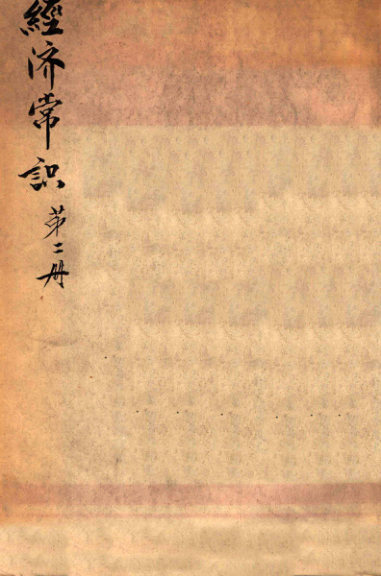 經济常识
第二册